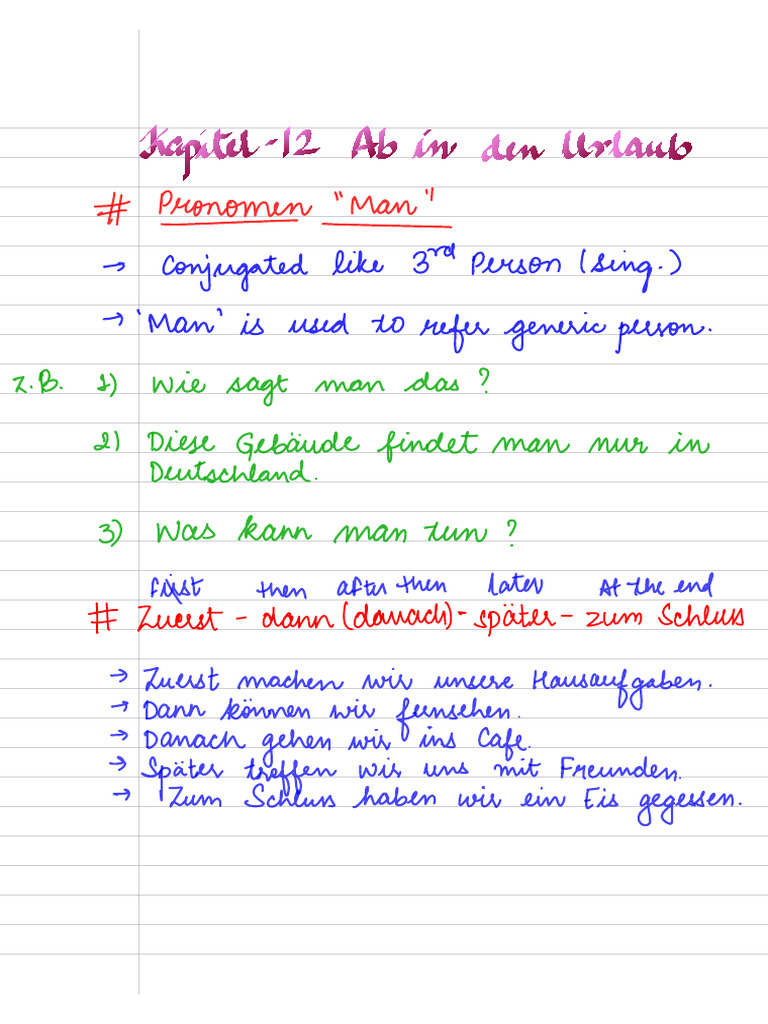 Kapitel-12 Ab in den Urlaub
# Pronomen "Man"
→ Conjugated like 3rd Person (sing.)
→ 'Man' is used to refer generic person.
z.B. 1) Wie sagt man das?
2) Diese Gebäude findet man nur in
Deutschland.
3) Was kann man tun?
first then after then later At the end
# Zuerst - dann (danach) - später - zum Schluss
→ Zuerst machen wir unsere Hausaufgaben.
→ Dann können wir fernsehen.
→ Danach gehen wir ins Cafe.
→ Später treffen wir uns mit Freunden.
→ Zum Schluss haben wir ein Eis gegessen.